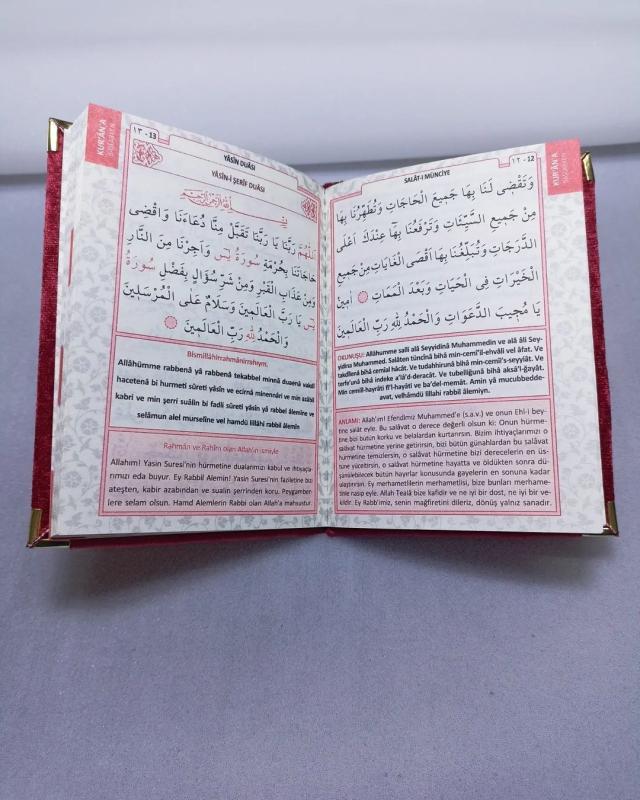 ١٢ - 12
KUR'ÂN'A
SALÂT-I MÜNCİYE
وَتَقْضِى لَنَا بِهَا جَمِيعَ الْحَاجَاتِ وَتُطَهِّرُنَا بِهَا
مِنْ جَمِيعِ السَّيِّئَاتِ وَتَرْفَعُنَا بِهَا عِنْدَكَ اَعْلَى
الدَّرَجَاتِ وَتُبَلِّغُنَا بِهَا اَقْصَى الْغَايَاتِ مِنْ جَمِيعِ
الْخَيْرَاتِ فِى الْحَيَاتِ وَبَعْدَ الْمَمَاتِ اٰمِينَ
يَا مُجِيبَ الدَّعَوَاتِ وَالْحَمْدُ لِلّٰهِ رَبِّ الْعَالَمِينَ
OKUNUŞU: Allâhumme salli alâ Seyyidinâ Muhammedin ve alâ âli Sey-
yidina Muhammed. Salâten tüncînâ bihâ min-cemî'il-ehvâli vel âfat. Ve
takdîlenâ bihâ cemîal hâcât. Ve tudahhirunâ bihâ min-cemîi's-seyyiât. Ve
terfe'unâ bihâ indeke a'lâ'd-deracât. Ve tubelliğunâ bihâ aksâ'l-ğayât.
Min cemîil-hayrâti fi'l-hayâti ve ba'del-memât. Amin yâ mucubbedde-
avat, velhâmdü lillahi rabbil âlemiyn.
ANLAMI: Allah'ım! Efendimiz Muhammed'e (s.a.v.) ve onun Ehl-i bey-
tine salât eyle. Bu salâvat o derece değerli olsun ki: Onun hürme-
tine bizi bütün korku ve belalardan kurtarırsın. Bizim ihtiyaçlarımızı o
salâvat hürmetine yerine getirirsin, bizi bütün günahlardan bu salâvat
hürmetine temizlersin, o salâvat hürmetine bizi derecelerin en üs-
tüne yüceltirsin, o salâvat hürmetine hayatta ve öldükten sonra dü-
şünülebilecek bütün hayırlar konusunda gayelerin en sonuna kadar
ulaştırırsın. Ey merhametlilerin merhametlisi, bize bunları merhame-
tinle nasip eyle. Allah Teală bize kafidir ve ne iyi bir dost, ne iyi bir ve-
kildir. Ey Rabb'imiz, senin mağfiretini dileriz, dönüş yalnız sanadır.
١٣ - 13
KUR'ÂN'A
YÂSÎN DUÂSI
YÂSÎN-İ ŞERÎF DUÂSI
اَللّٰهُمَّ رَبَّنَا يَا رَبَّنَا تَقَبَّلْ مِنَّا دُعَاءَنَا وَاقْضِى
حَاجَاتَنَا بِحُرْمَةِ سُورَةُ يٰسٓ وَاَجِرْنَا مِنَ النَّارِ
وَمِنْ عَذَابِ الْقَبْرِ وَمِنْ شَرِّ سُؤَالٍ بِفَضْلِ سُورَةُ
يٰسٓ يَا رَبَّ الْعَالَمِينَ وَسَلَامٌ عَلَى الْمُرْسَلِينَ
وَالْحَمْدُ لِلّٰهِ رَبِّ الْعَالَمِينَ
Bismillâhirrahmânirrahıym.
Allâhümme rabbenâ yâ rabbenâ tekabbel minnâ duaenâ vakdî
hacetenâ bi hurmeti sûreti yâsîn ve ecirnâ minennâri ve min azâbil
kabri ve min şerri suâlin bi fadli sûreti yâsîn yâ rabbel âlemîne ve
selâmun alel murselîne vel hamdü lillâhi rabbil âlemîn
Rahmân ve Rahîm olan Allah'ın ismiyle
Allahım! Yasin Suresi'nin hürmetine dualarımızı kabul ve ihtiyaçla-
rımızı eda buyur. Ey Rabbil Alemin! Yasin Suresi'nin faziletine bizi
ateşten, kabir azabından ve sualin şerrinden koru. Peygamber-
lere selam olsun. Hamd Alemlerin Rabbi olan Allah'a mahsustur.